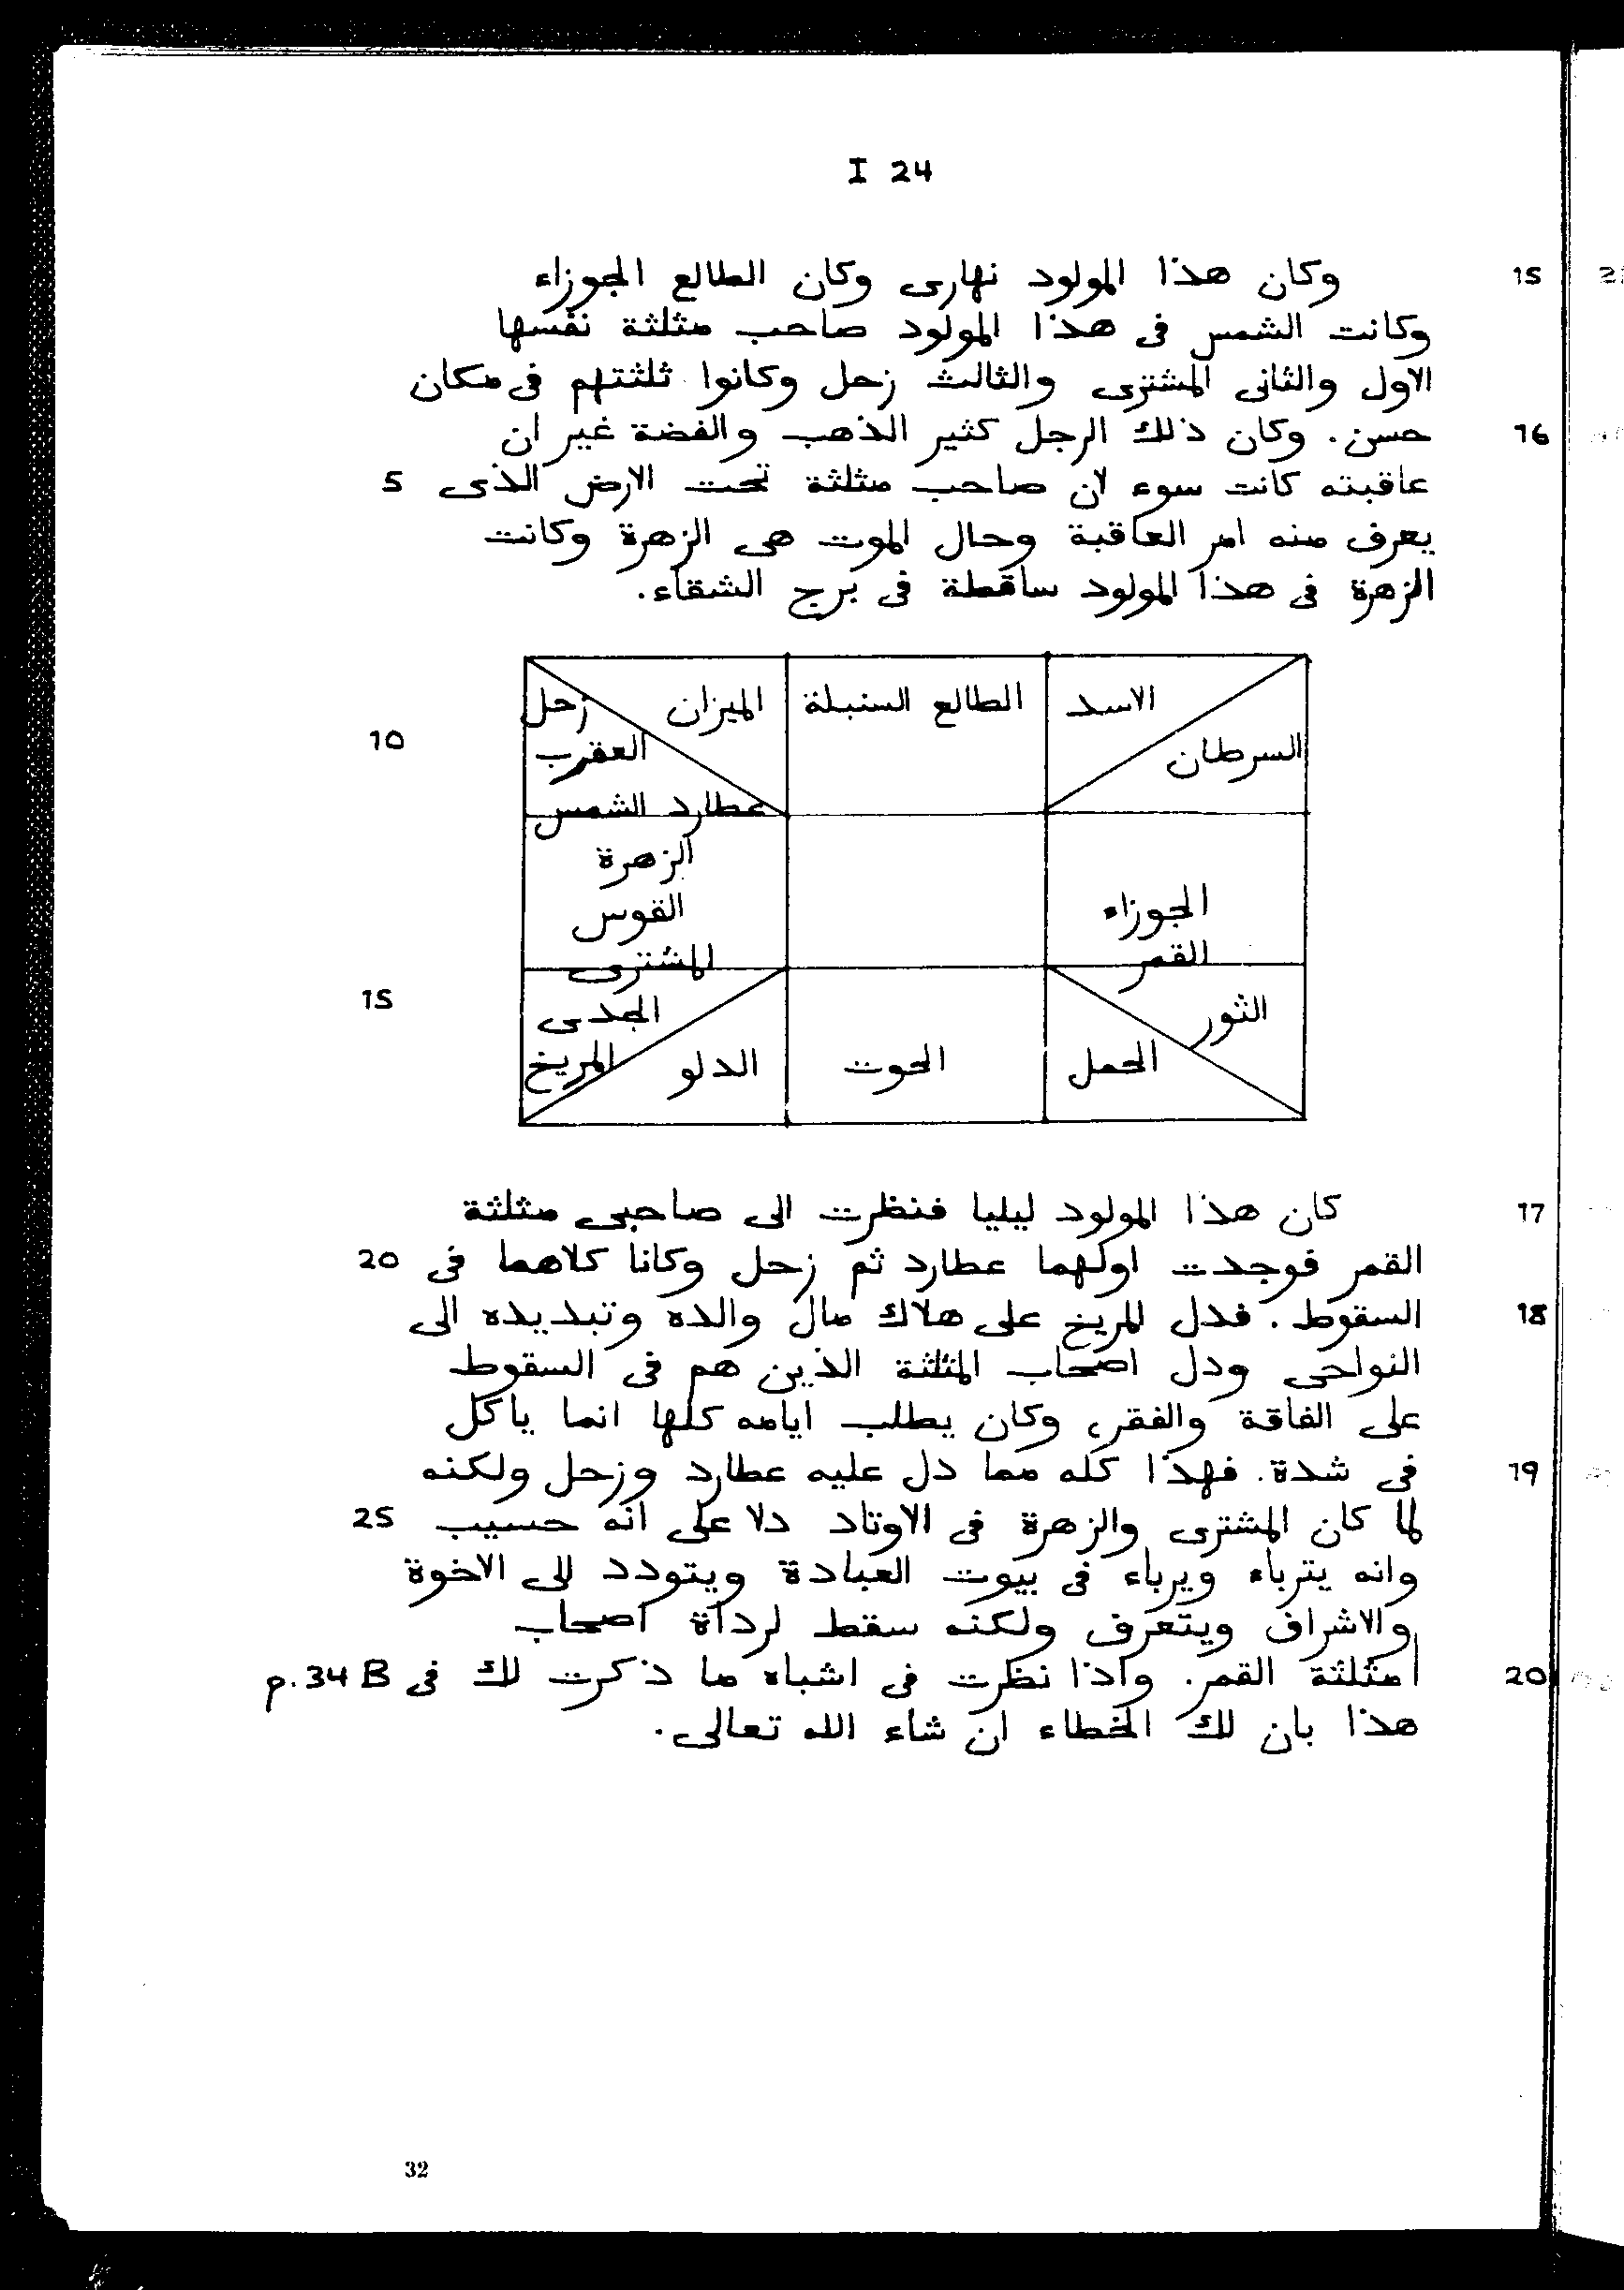 I 24
وكان هذا المولود نهارى وكان الطالع الجوزاء 15
وكانت الشمس فى هذا المولود صاحب مثلثة نفسها
الاول والثانى المشترى والثالث زحل وكانوا ثلثتهم فى مكان
حسن. وكان ذلك الرجل كثير الذهب والفضة غير ان 16
عاقبته كانت سوء لان صاحب مثلثة تحت الارض الذى 5
يعرف منه امر العاقبة وحال الموت هى الزهرة وكانت
الزهرة فى هذا المولود ساقطة فى برج الشقاء.
الاسد
الطالع السنبلة
الميزان
زحل
السرطان
العقرب
10
عطارد الشمس
الزهرة
الجوزاء
القوس
القمر
المشترى
الثور
الجدى
15
الحمل
الحوت
الدلو
المريخ
كان هذا المولود ليليا فنظرت الى صاحبى مثلثة 17
القمر فوجدت اولهما عطارد ثم زحل وكانا كلاهما فى 20
السقوط. فدل المريخ على هلاك مال والده وتبديده الى 18
النواحى ودل اصحاب المثلثة الذين هم فى السقوط
على الفاقة والفقر، وكان يطلب ايامه كلها انما ياكل
فى شدة. فهذا كله مما دل عليه عطارد وزحل ولكنه 19
لما كان المشترى والزهرة فى الاوتاد دلا على انه حسيب 25
وانه يترباء ويرباء فى بيوت العبادة ويتودد الى الاخوة
والاشراف ويتعرف ولكنه سقط لردأة اصحاب
مثلثة القمر. واذا نظرت فى اشباه ما ذكرت لك فى p.34 B 20
هذا بان لك الخطاء ان شاء الله تعالى.
32